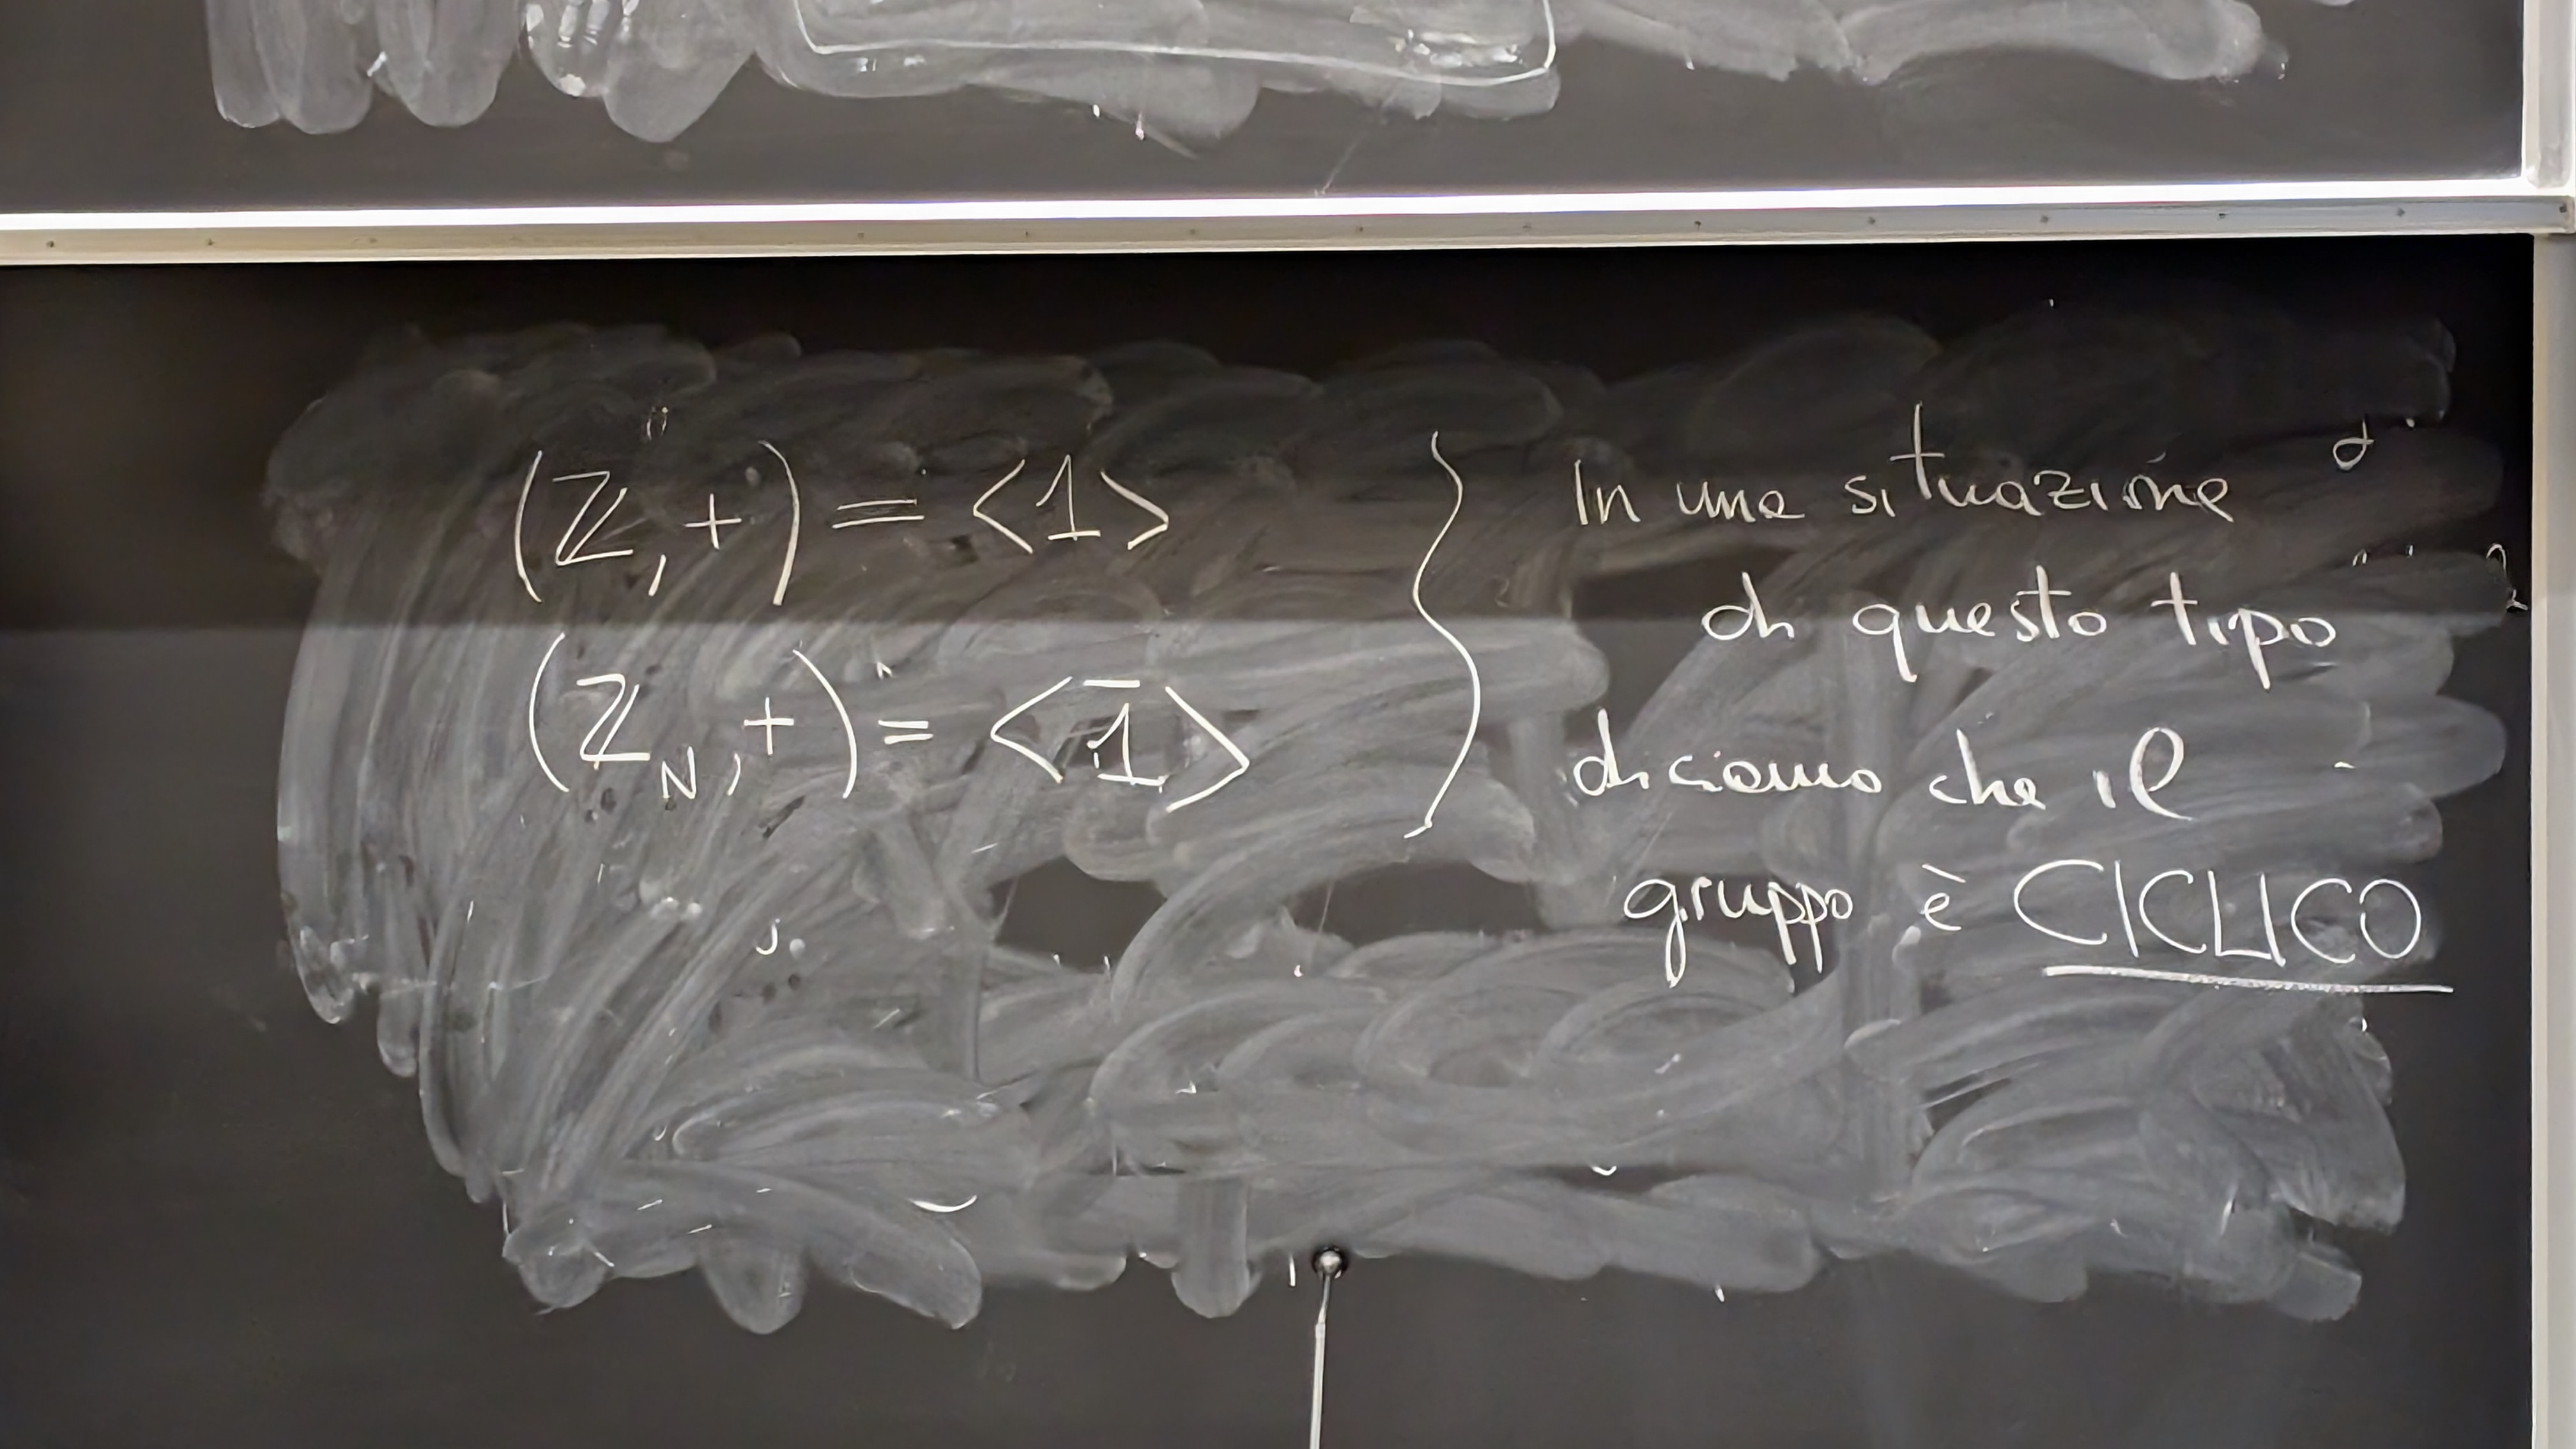 (ℤ, +) = <1>
(ℤ_N, +) = <1̄>
In una situazione
di questo tipo
diciamo che il
gruppo è CICLICO